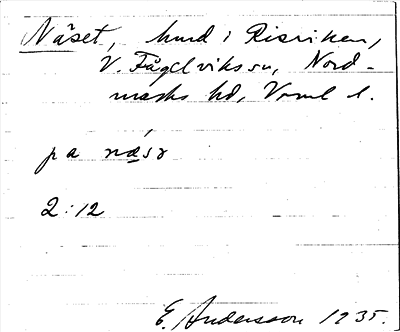 Näset, hmd i Risriken,
V. Fågelviks sn, Nord-
marks hd, Vrml l.
på næ̀sɜ
2:12
E. Andersson 1935.